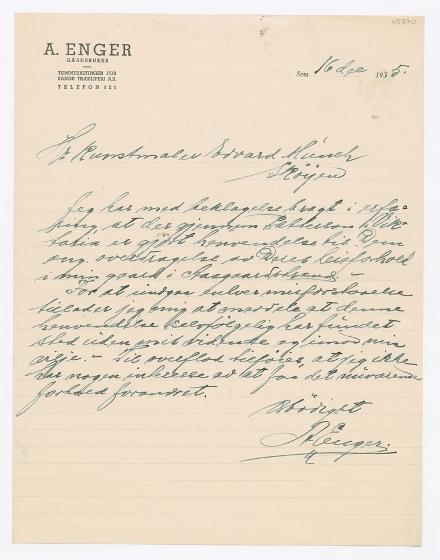 H5370
A. ENGER
GÅRDBRUKER
TØMMERSETINGER FOR
SANDE TRÆSLIPERI A.S.
TELEFON 525
Sem 16 dec 1935.
Hr Kunstmaler Edvard Münch
Skøyen
Jeg har med beklagelse bragt i erfa-
ring, at der gjennem
er gjort henvendelse til Dem
ang. overtragelse av Deres leieforhold
i min gaard i Aasgaardstrand. –
For at undgaa enhver misforstaaelse
tillader jeg mig at meddele at denne
henvendelse selvfølgelig har fundet
sted uden mit vidende og imod min
vilje. – Til overflod tilføies, at jeg ikke
har nogen interesse av at faa det nuværende
forhold forandret.
Ærbødigst
A Enger.